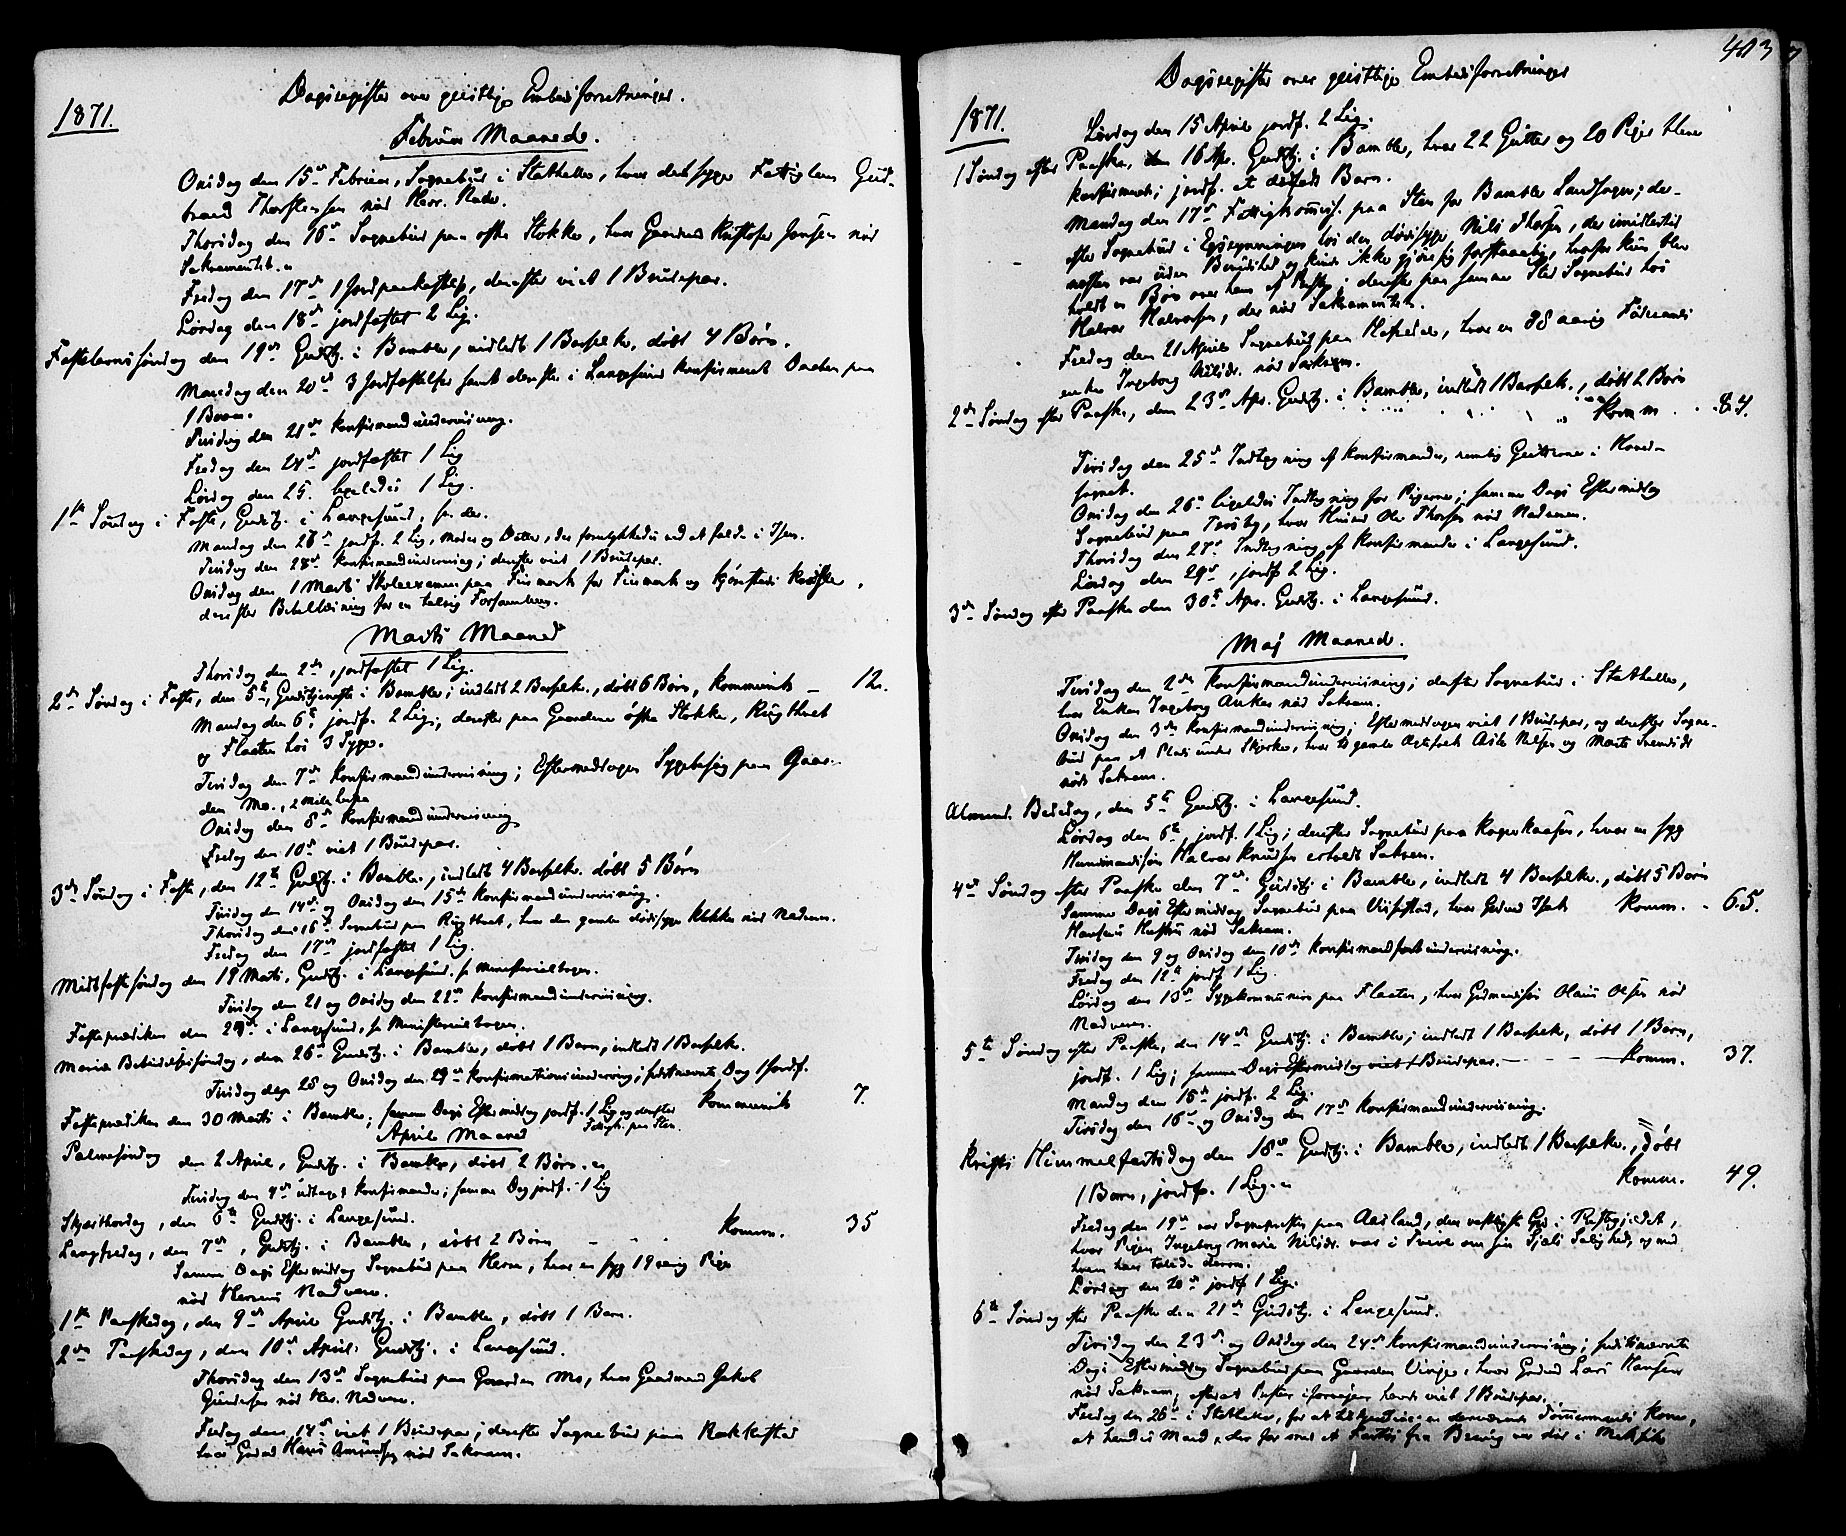 Dagsregister over geistlige Embedsforretninger.
1871.
Februar Maaned.
Onsdag den 15de Februar, Sognebud i Stathelle, hvor det syge Fattiglem Gud-
brand Thorstensen nød Herr. Nadv.
Thorsdag den 16de Sognebud paa østre Stokke, hvor Gaardmd Kristofer Jensen nød
Sakramentet.
Fredag den 17de 1 Jordpaakastelse, derefter viet 1 Brudepar.
Lørdag den 18de jordfæstet 2 Lig.
Fastelavnssøndag den 19de Gudstj. i Bamble, indledt 1 Barselk., døbt 4 Børn.
Mandag den 20de 3 Jordfæstelser samt derefter i Langesund konfirmeret Daaben paa
1 Barn.
Tirsdag den 21de Konfirmandundervisning.
Fredag den 24de jordfæstet 1 Lig
Lørdag den 25. ligeledes 1 Lig.
1ste Søndag i Faste, Gudstj. i Langesund, se der.
Mandag den 27de jordf. 2 Lig, Moder og Datter, der forulykkedes ved at falde i Isen.
Tirsdag den 28de Konfirmandundervisning; derefter viet 1 Brudepar.
Onsdag den 1 Marts Skoleexamen paa Tinmark for Tinmark og Kjønstads Kredse,
derefter Bibellæsning for en talrig Forsamling.
Marts Maaned
Thorsdag den 2den, jordfæstet 1 Lig.
2den Søndag i Faste, den 5te, Gudstjeneste i Bamble; indledt 2 Barselk., døbt 6 Børn, kommunik. — 12.
Mandag den 6te jordf. 2 Lig; derefter paa Gaardene østre Stokke, Rugthvet
og Flaaten hos 3 Syge.
Tirsdag den 7de Konfirmandundervisning; Eftermiddagen Sygebesøg paa Gaar-
den Mo, 2 Mile borte
Onsdag den 8de Konfirmandundervisning
Fredag den 10de viet 1 Brudepar.
3die Søndag i Faste, den 12te Gudstj. i Bamble, indledt 4 Barselk. døbt 5 Børn
Tirsdag den 14de og Onsdag den 15de Konfirmandundervisning.
Thorsdag den 16de Sognebud paa Rugthvet, hvor den gamle dødssyge Klokker nød Nadveren.
Fredag den 17de jordfæstet 1 Lig.
Midtfastesøndag den 19 Marts, Gudstj. i Langesund. se Ministerialbogen.
Tirsdag den 21 og Onsdag den 22de Konfirmandundervisning.
Fasteprædiken den 23de i Langesund, se Ministerialbogen.
Mariæ Bebudelsessøndag, den 26de Gudstj. i Bamble, døbt 1 Barn, indledt 1 Barselk.
Tirsdag den 28 og Onsdag den 29de Konfirmationsunderving; sidstnævnte Dag 1 Jordf.
Fasteprædiken den 30 Marts i Bamble; samme Dags Eftermiddag jordf. 1 Lig og derefter kommunik. 7.
Fattigk. paa Sten.
April Maaned
Palmesøndag den 2 April, Gudstj. i Bamble, døbt 2 Børn.
Tirsdag den 4de udtaget Konfirmander; samme Dag jordf. 1 Lig
Skjærthorsdag, den 6te Gudstj. i Langesund.
Langfredag, den 7de, Gudstj. i Bamble, døbt 2 Børn - - - Komm. 35
Samme Dags Eftermiddag Sognebud paa Herre, hvor en syg 19aarig Pige
nød Herrens Nadvere.
1ste Paaskedag, den 9de April Gudstj. i Bamble, døbt 1 Barn.
2den Paaskdag, den 10de April Gudstj. i Langesund.
Thorsdag den 13de Sognebud paa Gaarden Mo, hvor Gaardmand Jakob
Gundersen nød Her. Nadvere.
Fredag den 14de viet 1 Brudepar; derefter Sognebud paa Rakkestad
hvor Gdmd Hans Amundsen nød Sakram.
403
Dagsregister over geistlige Embedsforretninger
1871.
Lørdag den 15 April jordf. 2 Lig.
1 Søndag efter Paaske, den 16 Apr. Gudstj. i Bamble, hvor 22 Gutter og 20 Piger bleve
konfirmeret; jordf. et dødfødt Barn.
Mandag den 17de Fattigkommiss. paa Sten for Bamble Landsogn; der-
efter Sognebud i hos den dødssyge Nils Thorsen, der imidlertid
næsten var uden Bevidsthed og kunde ikke gjøre sig forstaaelig, hvorfor kun blev
holdt en Bøn over ham af Præsten; derefter paa samme Sted Sognebud hos
Halvor Halvorsen, der nød Sakramentet.
Fredag den 21 April Sognebud paa Hafsund, hvor en 88 aarig Føderaads
enke Ingeborg Nilsdr. nød Sakram.
2den Søndag efter Paaske, den 23de Apr. Gudstj. i Bamble, indledt 1 Barselk., døbt 2 Børn
Komm - - 84.
Tirsdag den 25de Indtegning af Konfirmander, nemlig Gutterne i Hoved-
sognet.
Onsdag den 26de ligeledes Indtegning for Pigerne; samme Dags Eftermiddag
Sognebud paa Tørsby, hvor Husmd Ole Thorsen nød Nadveren.
Thorsdag den 27de Indtegning af Konfirmander i Langesund.
Lørdag den 29de, jordf. 2 Lig.
3die Søndag efter Paaske den 30te Apr. Gudstj. i Langesund.
Maj Maaned.
Tirsdag den 2den Konfirmandundervisning; derefter Sognebud i Stathelle,
hvor Enken Ingeborg Anker nød Sakram.
Onsdag den 3die Konfirmandundervisning; Eftermiddagen viet 1 Brudepar, og derefter Sogne-
bud paa et Plads under Skjerke, hvor to gamle Ægtefolk Asle Nilsen og Marte Svendsdr
nød Sakram.
Almind. Bededag, den 5te Gudstj. i Langesund.
Lørdag den 6te, jordf. 1 Lig; derefter Sognebud paa hvor en syg
Husmandssøn Halvor Knudsen erholdt Sakram.
4de Søndag efter Paaske den 7de Gudstj. i Bamble, indledt 4 Barselk., døbt 5 Børn
Samme Dags Eftermiddag Sognebud paa Vissestad, hvor Gdmd Isak Komm. - 65.
Hansens Hustru nød Sakram.
Tirsdag den 9 og Onsdag den 10de Konfirmandundervisning.
Fredag den 12te jordf. 1 Lig.
Lørdag den 13de Sygekommunion paa Flaaten, hvor Gdmandssøn Olaus Olsen nød
Nadveren.
5te Søndag efter Paaske, den 14de Gudstj. i Bamble; indledt 1 Barselk., døbt 1 Barn,
jordf. 1 Lig; samme Dags Eftermiddag viet 1 Brudepar. - - - Komm. 37.
Mandag den 15de jordf. 2 Lig.
Tirsdag den 16de og Onsdag den 17de Konfirmandundervisning.
Kristi Himmelfartsdag den 18de Gudstj. i Bamble, indledt 1 Barselk., døbt
1 Barn, jordf. 1 Lig. Komm. 49.
Fredag den 19de var Sognepræsten paa Aasland, den vestligste Gd i Præstegjeldet,
hvor Pigen Ingeborg Marie Nilsdr. var i Tvivl om sin Sjæls Salighed, og med
hvem han talede derom.
Lørdag den 20de jordf 1 Lig.
6te Søndag efter Paaske den 21de Gudstj. i Langesund.
Tirsdag den 23de og Onsdag den 24de Konfirmandundervisning; sidstnævnte
Dags Eftermiddag Sognebud paa Gaarden Vinje, hvor Gdmd Lars Hansen
nød Sakram, efterat Præsten iforvejen havde viet 1 Brudepar.
Fredag den 26de i Stathelle, for at en derværende Tømmermands Kone,
at hendes Mand, der for med et fra Brevig var død i Meksiko